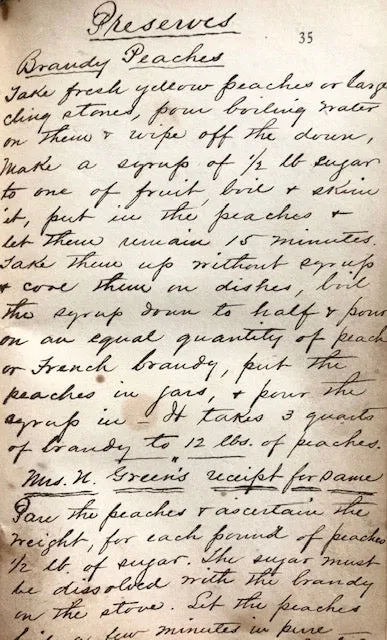 Preserves
35
Brandy Peaches
Take fresh yellow peaches or large
cling stones, pour boiling water
on them & wipe off the down,
Make a syrup of 1/2 lb sugar
to one of fruit, boil & skim
it, put in the peaches &
let them remain 15 minutes.
Take them up without syrup
& cool them on dishes, boil
the syrup down to half & pour
on an equal quantity of peach
or French brandy, put the
peaches in jars, & pour the
syrup in – It takes 3 quarts
of brandy to 12 lbs. of peaches.
Mrs. N. Green's receipt for same
Pare the peaches & ascertain the
weight, for each pound of peaches
1/2 lb of sugar. The sugar must
be dissolved with the brandy
on the stove. Let the peaches
a few minutes in pure